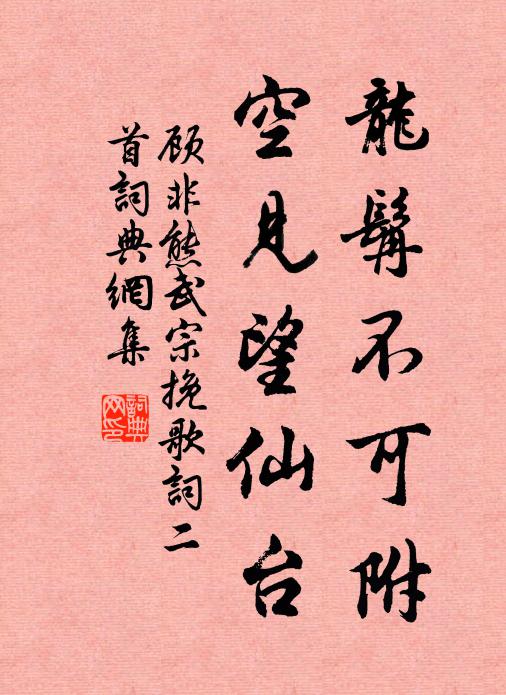 龍髯不可附
空見望仙台
顾非熊武宗挽歌詞二
首詞典網集
詞典
网印